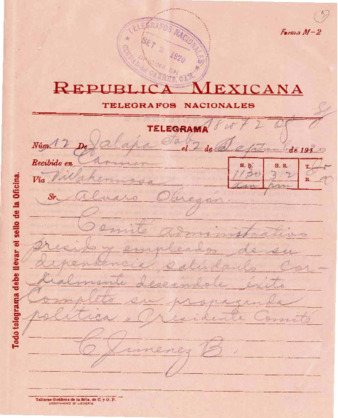 Forma M-2
TELEGRAFOS NACIONALES
SET 3 1920
CIUDAD DEL CARMEN, CAM.
REPUBLICA MEXICANA
TELEGRAFOS NACIONALES
TELEGRAMA
Núm. 12 De Jalapa Tab. el 2 de Septbre de 19
Recibido en Carmen
Vía Villahermosa
H. D. H. R.
1130 312
am pm
Sr. Alvaro Obregon
Comite administrativo
presid y empleados de su
dependencia saludanlo cor-
dialmente deseandole exito
completo su propaganda
politica a Presidente Comite
C Jimenez B.
Todo telegrama debe llevar el sello de la Oficina.
Talleres Gráficos de la Sría. de C. y O. P.